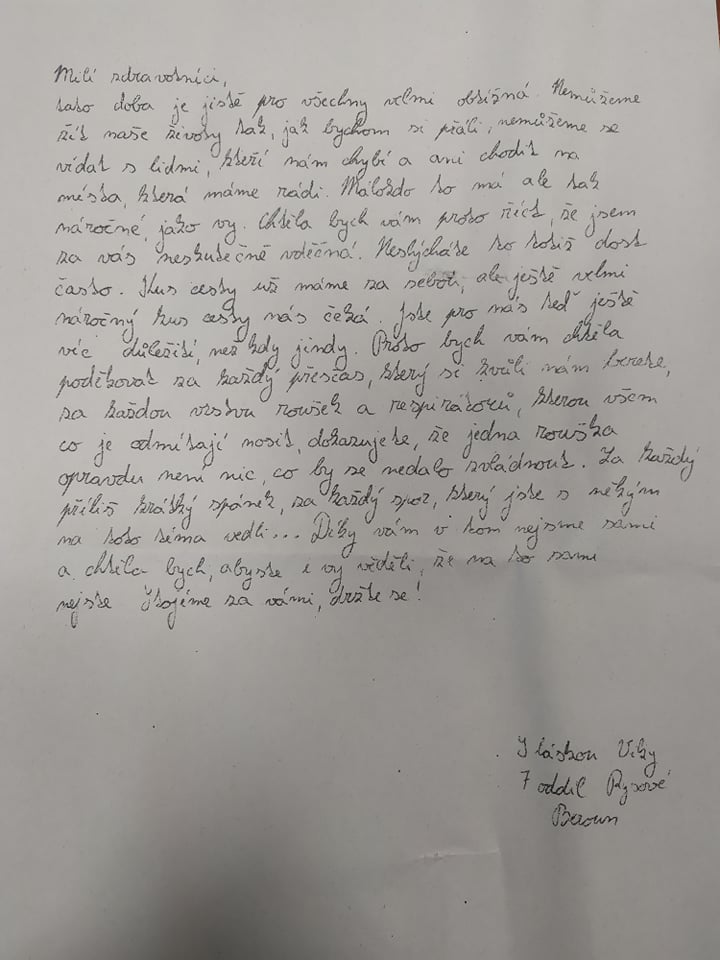 Milí zdravotníci,
tato doba je jistě pro všechny velmi obtížná. Nemůžeme
žít naše životy tak, jak bychom si přáli, nemůžeme se
vídat s lidmi, kteří nám chybí a ani chodit na
místa, která máme rádi. Málokdo to má ale tak
náročné, jako vy. Chtěla bych vám proto říct, že jsem
za vás neskutečně vděčná. Neslýcháte to totiž dost
často. Kus cesty už máme za sebou, ale ještě velmi
náročný kus cesty nás čeká. Jste pro nás teď ještě
víc důležití, než kdy jindy. Proto bych vám chtěla
poděkovat za každý přesčas, který si kvůli nám berete,
za každou vrstvu roušek a respirátorů, kterou všem
co je odmítají nosit, dokazujete, že jedna rouška
opravdu není nic, co by se nedalo zvládnout. Za každý
příliš krátký spánek, za každý spor, který jste s někým
na toto téma vedli... Díky vám v tom nejsme sami
a chtěla bych, abyste i vy věděli, že na to sami
nejste. Stojíme za vámi, držte se!
S láskou Viky
7 oddíl Rysové
Beroun